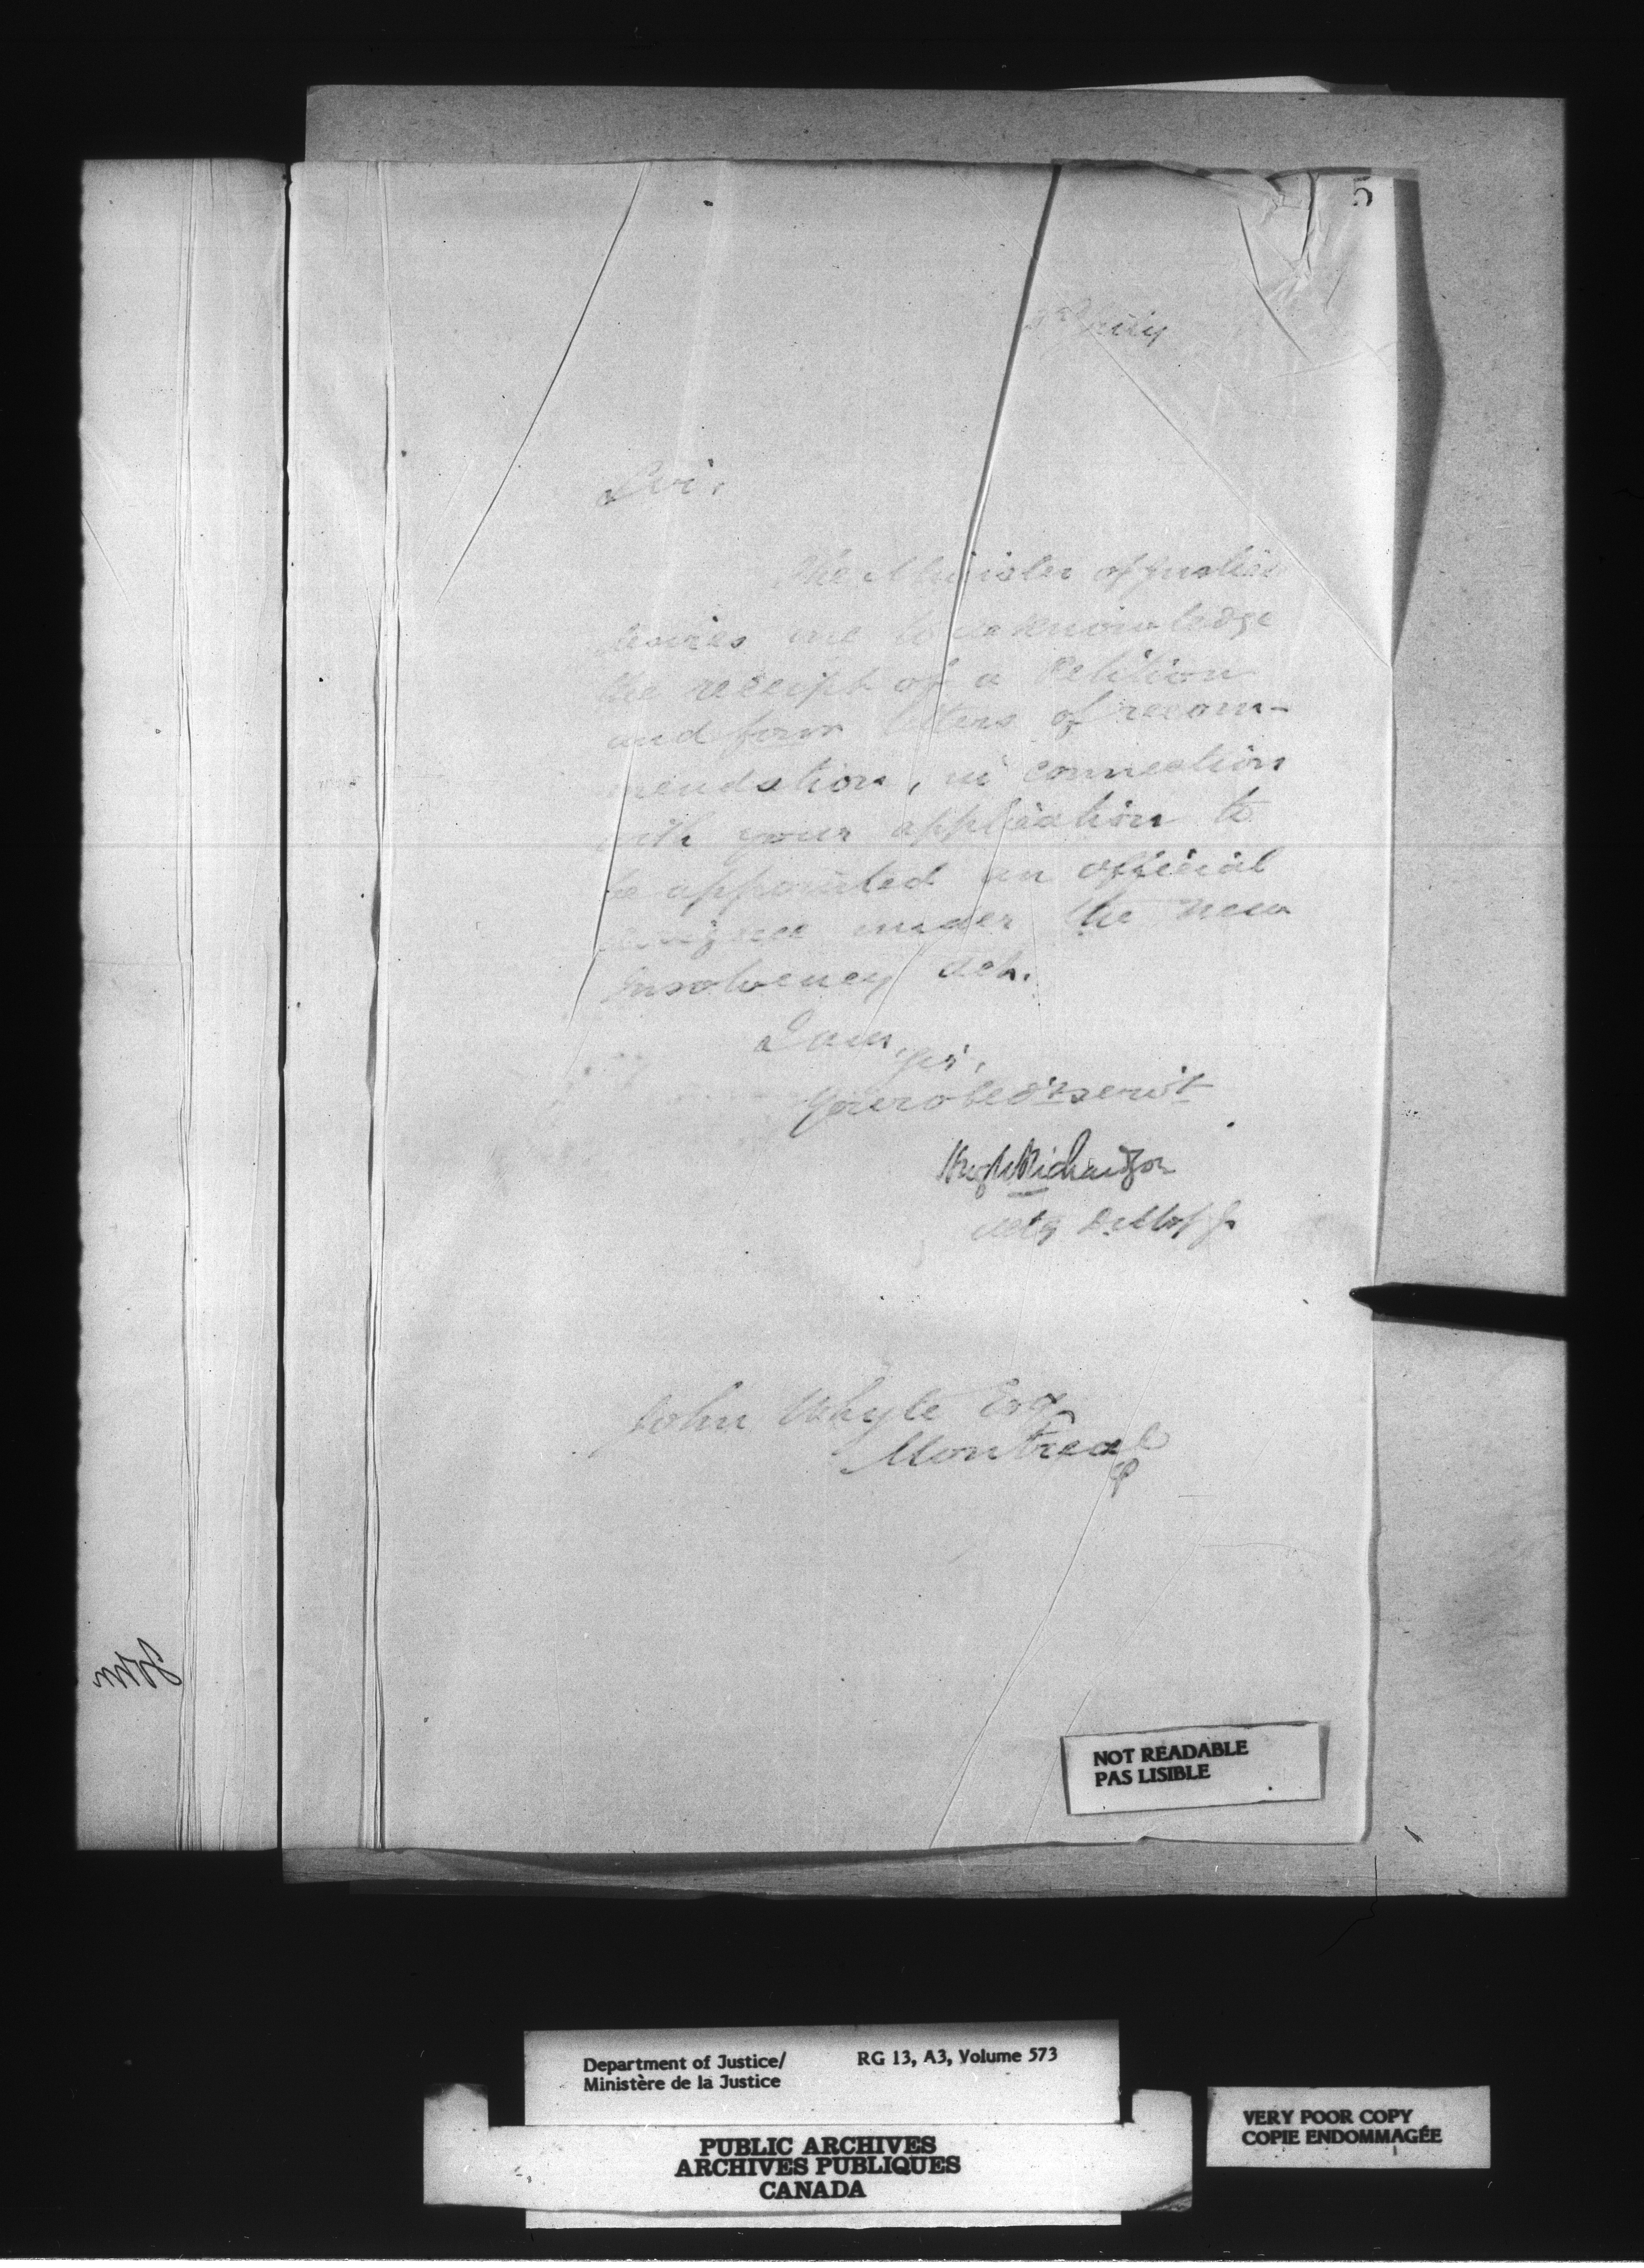 5
July
Sir,
The Minister of Justice
desires me to acknowledge
the receipt of a Petition
and four letters of recom-
mendation, in connection
with your application to
be appointed an official
assignee under the new
Insolvency Act.
I am,
Sir,
Your obed't serv't
Hugh Richardson
Actg D. M. of J.
John Whyte Esq
Montreal
NOT READABLE
PAS LISIBLE
Department of Justice/ RG 13, A3, Volume 573
Ministère de la Justice
PUBLIC ARCHIVES
ARCHIVES PUBLIQUES
CANADA
VERY POOR COPY
COPIE ENDOMMAGÉE